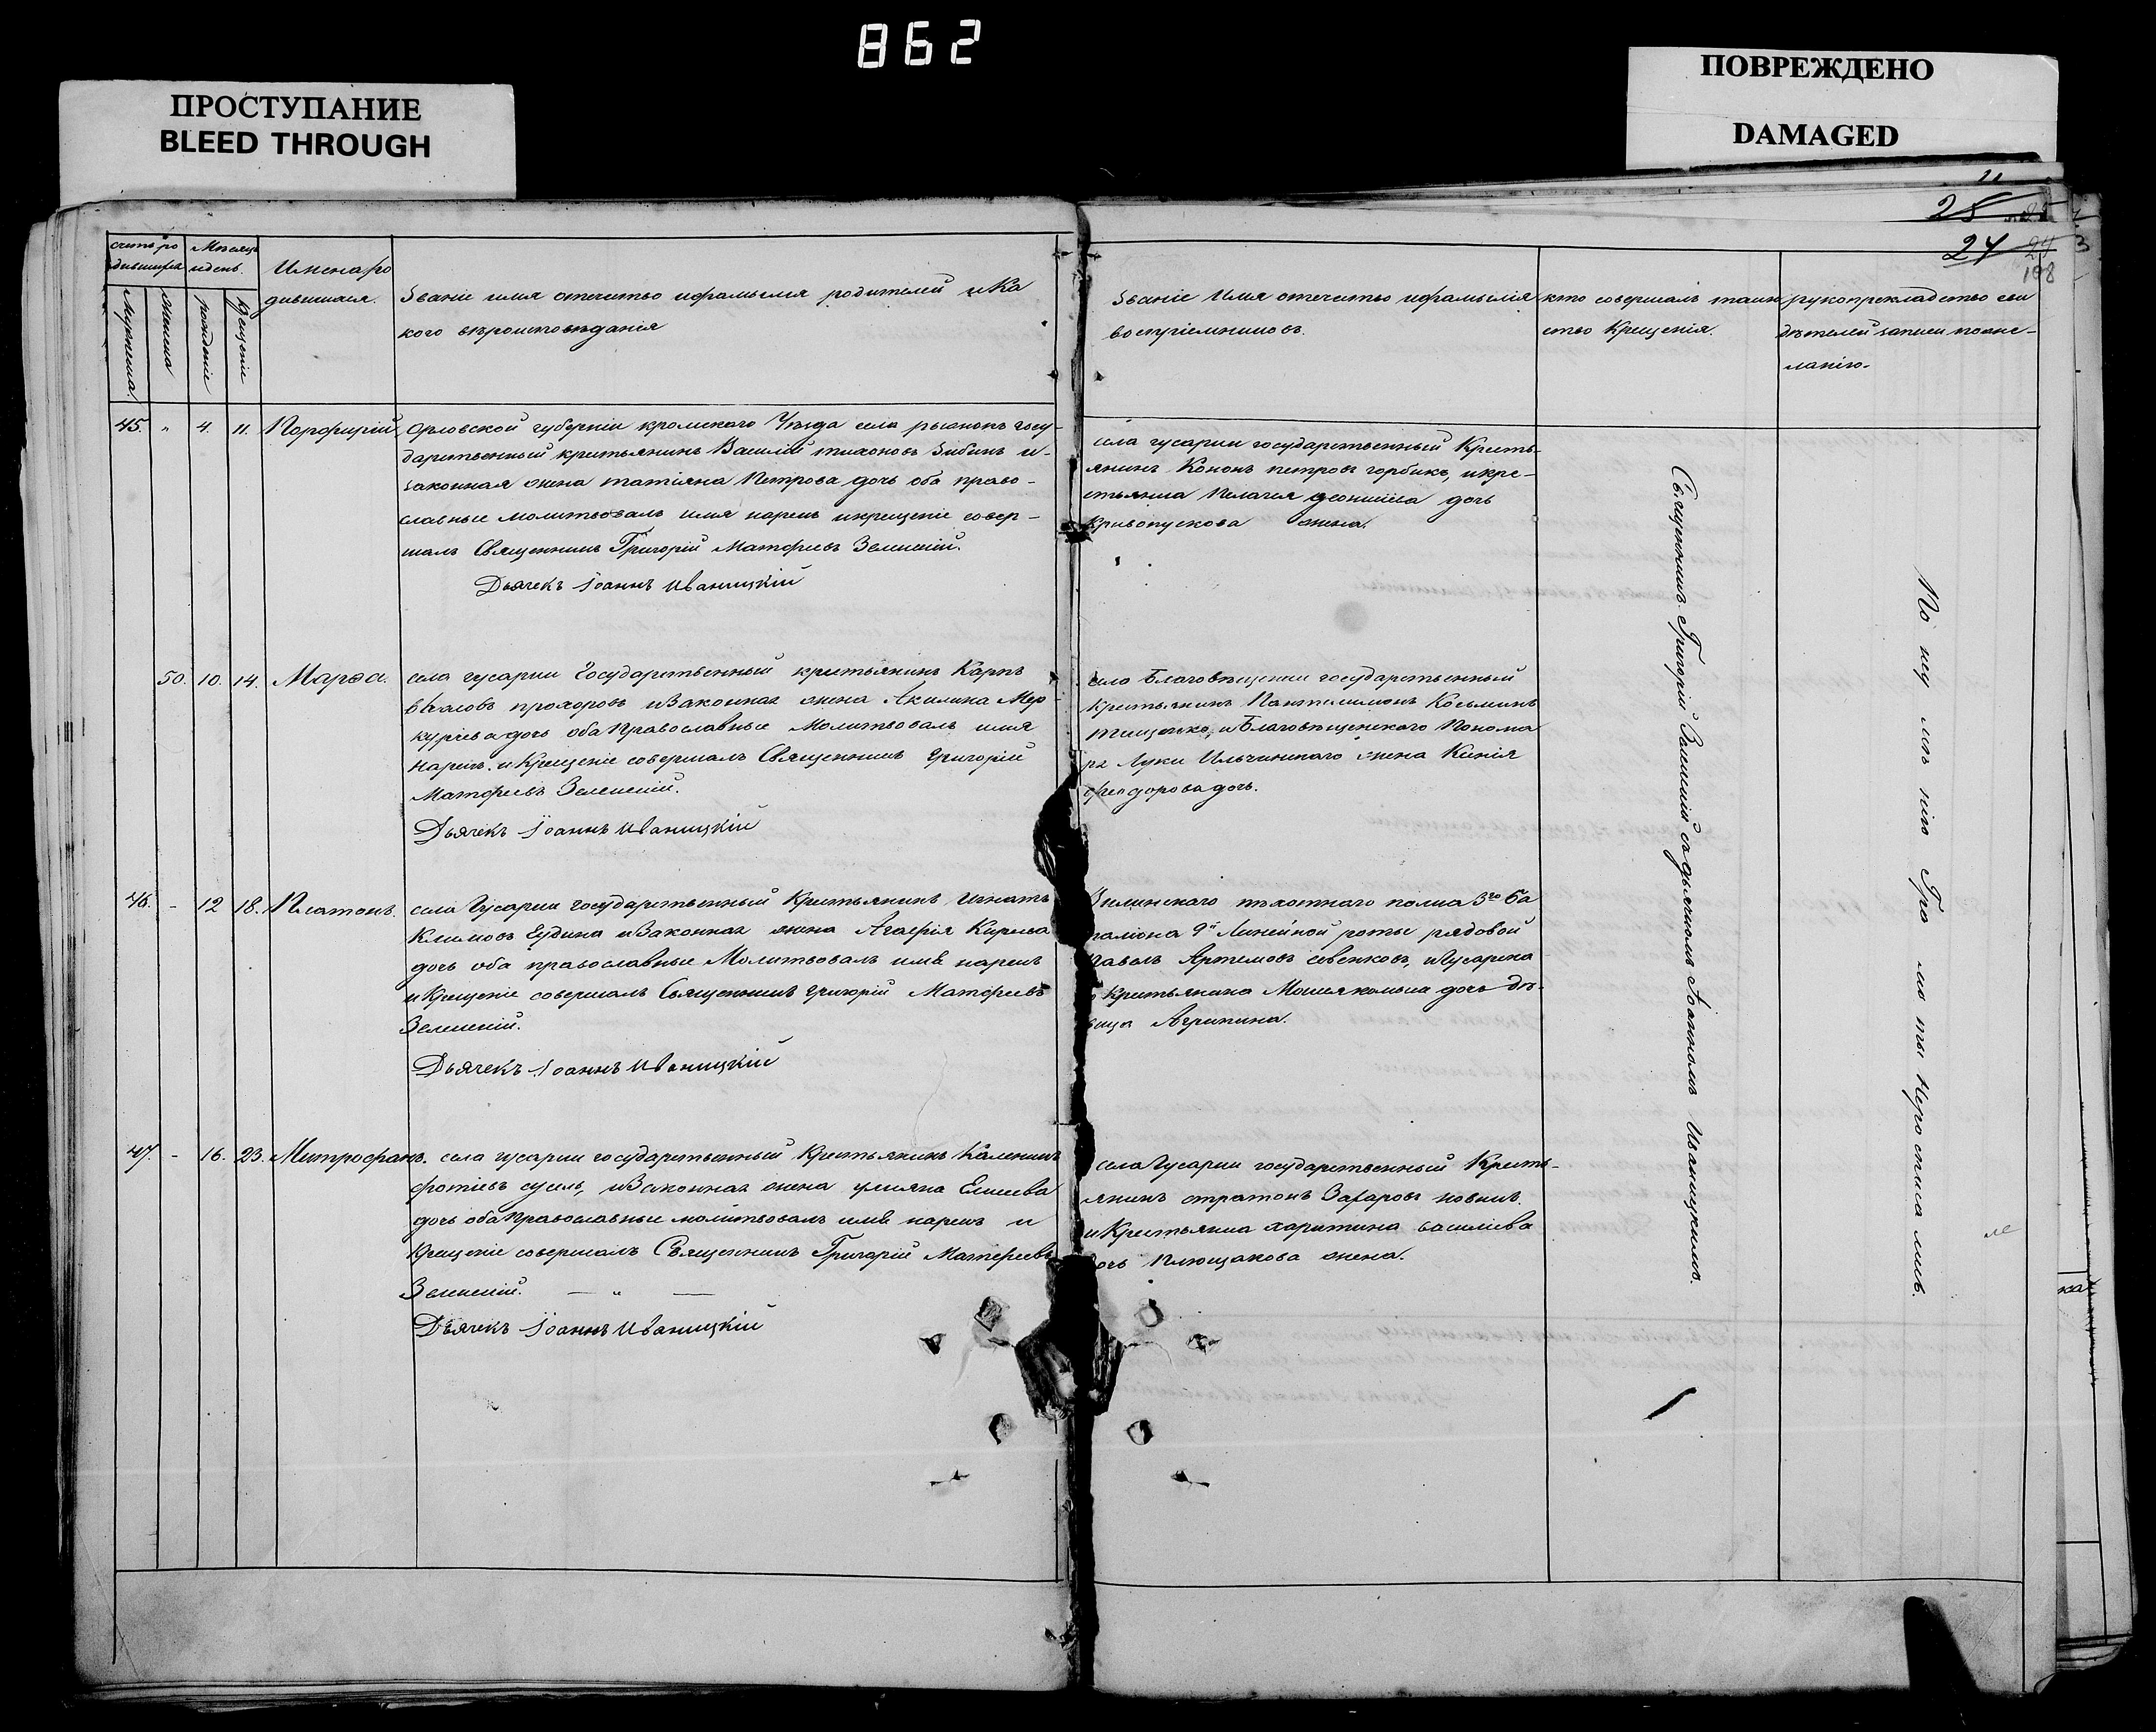 862
ПРОСТУПАНИЕ
BLEED THROUGH
ПОВРЕЖДЕНО
DAMAGED
25
24 24
198
счетъ ро
дившихся
Мѣсяцъ
и день.
Имена ро
дившихся.
Мужеска.
Женска
рожденіе
Крещеніе
Званіе имя отечество и фамилия родителей и Ка
кого вѣроисповѣданія
Званіе Имя отечество и фамилія
воспріемниковъ.
кто совершалъ таин
ство Крещенія.
рукоприкладство сви
дѣтелей записи по же-
ланію.
45. " 4. 11. Порфирій
Орловской губерніи кромского Уѣзда села госу-
дарственный крестьянинъ Василій тихоновъ Зибинъ и
законная жена татіяна Петрова дочь оба право-
славные молитвовалъ имя нарекъ и крещеніе совер-
шалъ Священникъ Григорій Матфеевъ Зеленскій.
Дьячекъ Іоаннъ Иваницкій
села гусарки государственный Кресть-
янинъ Кононъ петровъ горбикъ, и кре-
стьянка Пелагея дочь
Кривопускова жена.
50. 10. 14. Марѳа.
села гусарки Государственный крестьянинъ Карпъ
прохоровъ и Законная жена Акилина Мер-
куріева дочь оба Православные Молитвовалъ имя
Нарекъ. и Крещеніе совершалъ Священникъ Григорій
Матфеевъ Зеленскій.
Дьячекъ Іоаннъ Иваницкій
села Благовѣщенки государственный
Крестьянинъ Пантелимонъ Косьминъ
тищенко, и Благовѣщенского Понома
ря Луки Ильчинскаго жена Ксенія
феодорова дочь.
46. - 12 18. Платонъ.
села Гусарки государственный Крестьянинъ Игнатъ
Климовъ Гудина и Законная жена Агафія Кирьева
дочь оба православные Молитвовалъ имя нарекъ
и Крещеніе совершалъ Священникъ Григорій Матфеевъ
Зеленскій.
Дьячекъ Іоаннъ Иваницкій
пѣхотнаго полка 3го ба
таліона 9й Линейной роты рядовой
Павелъ Артемовъ севенковъ, и Гусарска
Крестьянина дочь дѣ-
вица Агрипина.
47. - 16. 23. Митрофанъ.
села гусарки государственный Крестьянинъ Каленикъ
фотіевъ сусль, и Законная жена уліяна Елисеева
дочь оба Православные молитвовалъ имя нарекъ и
Крещеніе совершалъ Священникъ Григорій Матфеевъ
Зеленскій. — " —
Дьячекъ Іоаннъ Иваницкій
села Гусарки государственный Кресть-
янинъ стратонъ Захаровъ новикъ.
и Крестьянка харитина василіева
дочь Плющакова жена.
Священникъ Григорій Зеленскій съ дьячкомъ Іоанномъ Иваницкимъ.
По неу мѣ нію Гра мо ты Неро списа лись.